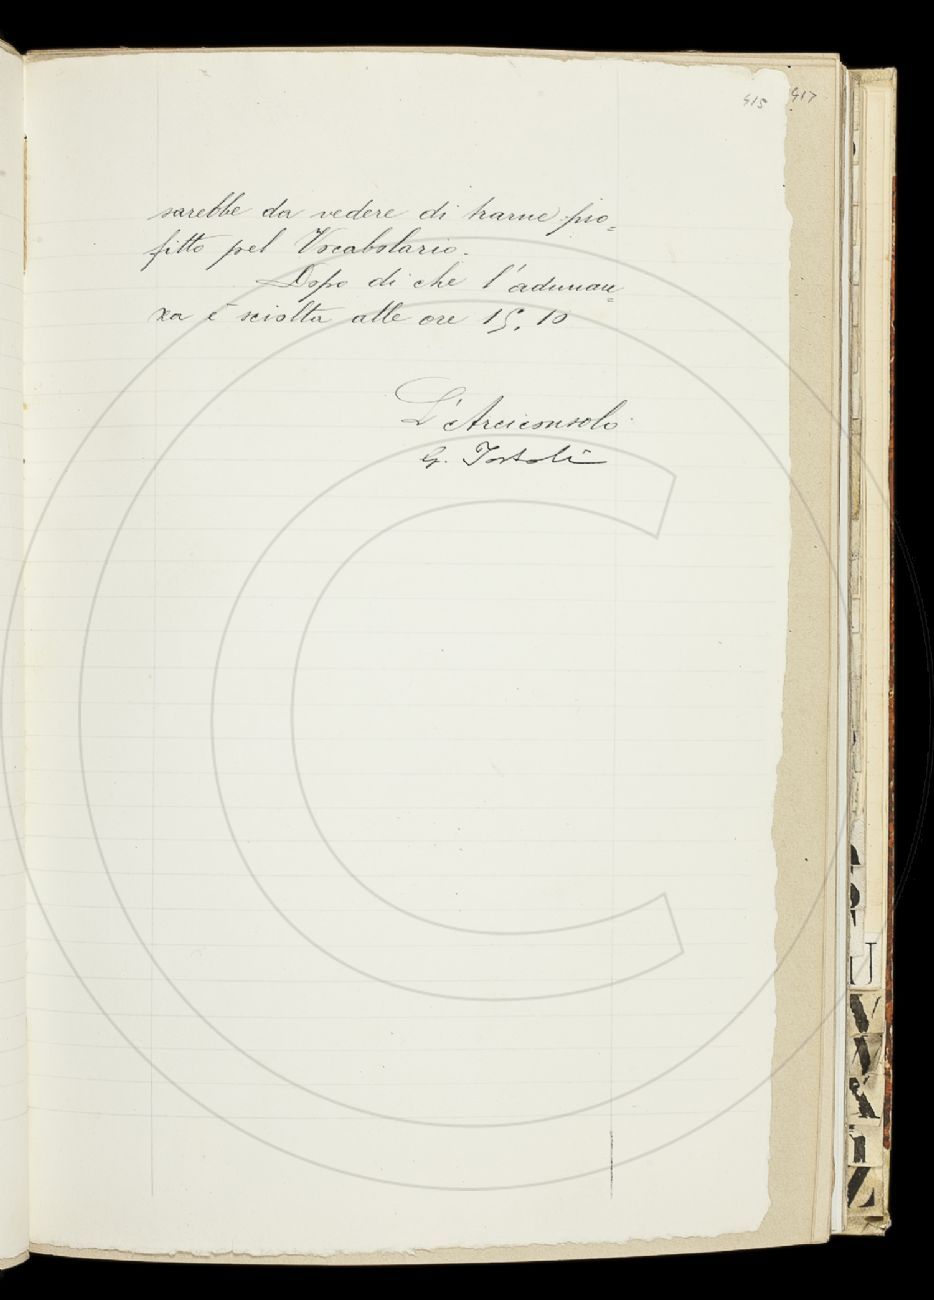 415 417
sarebbe da vedere di trarne pro=
fitto pel Vocabolario.
Dopo di che l'adunan=
za è sciolta alle ore 15.10
L'Arciconsolo
G. Tortoli
U
V
W
X
Y
Z